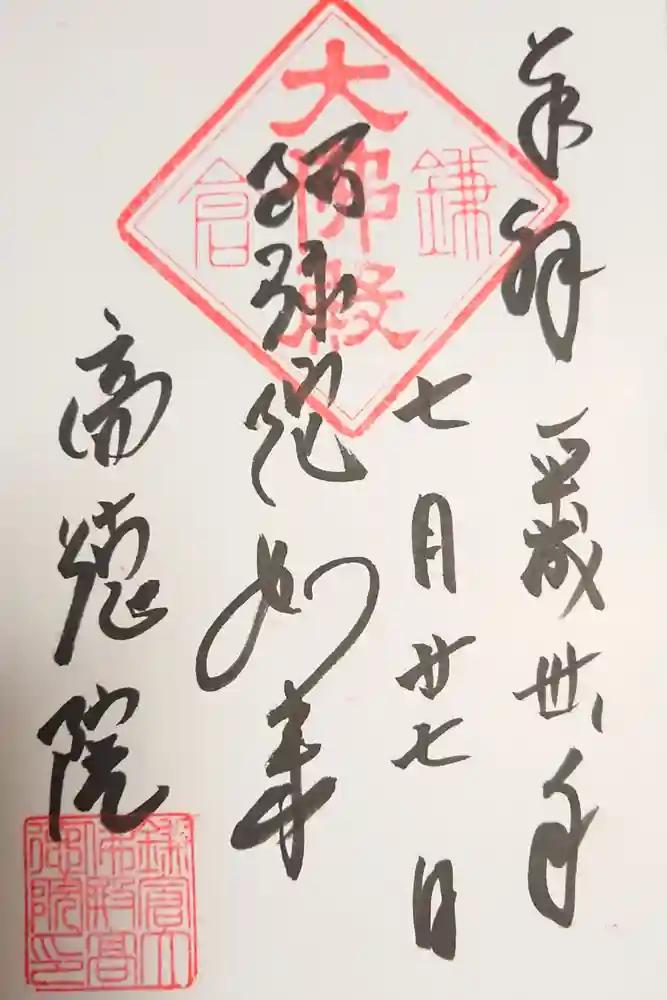 奉拝 平成卅年
七月廿七日
大佛殿
鎌倉
阿弥陀如来
高徳院
鎌倉大
佛殿高
德院印